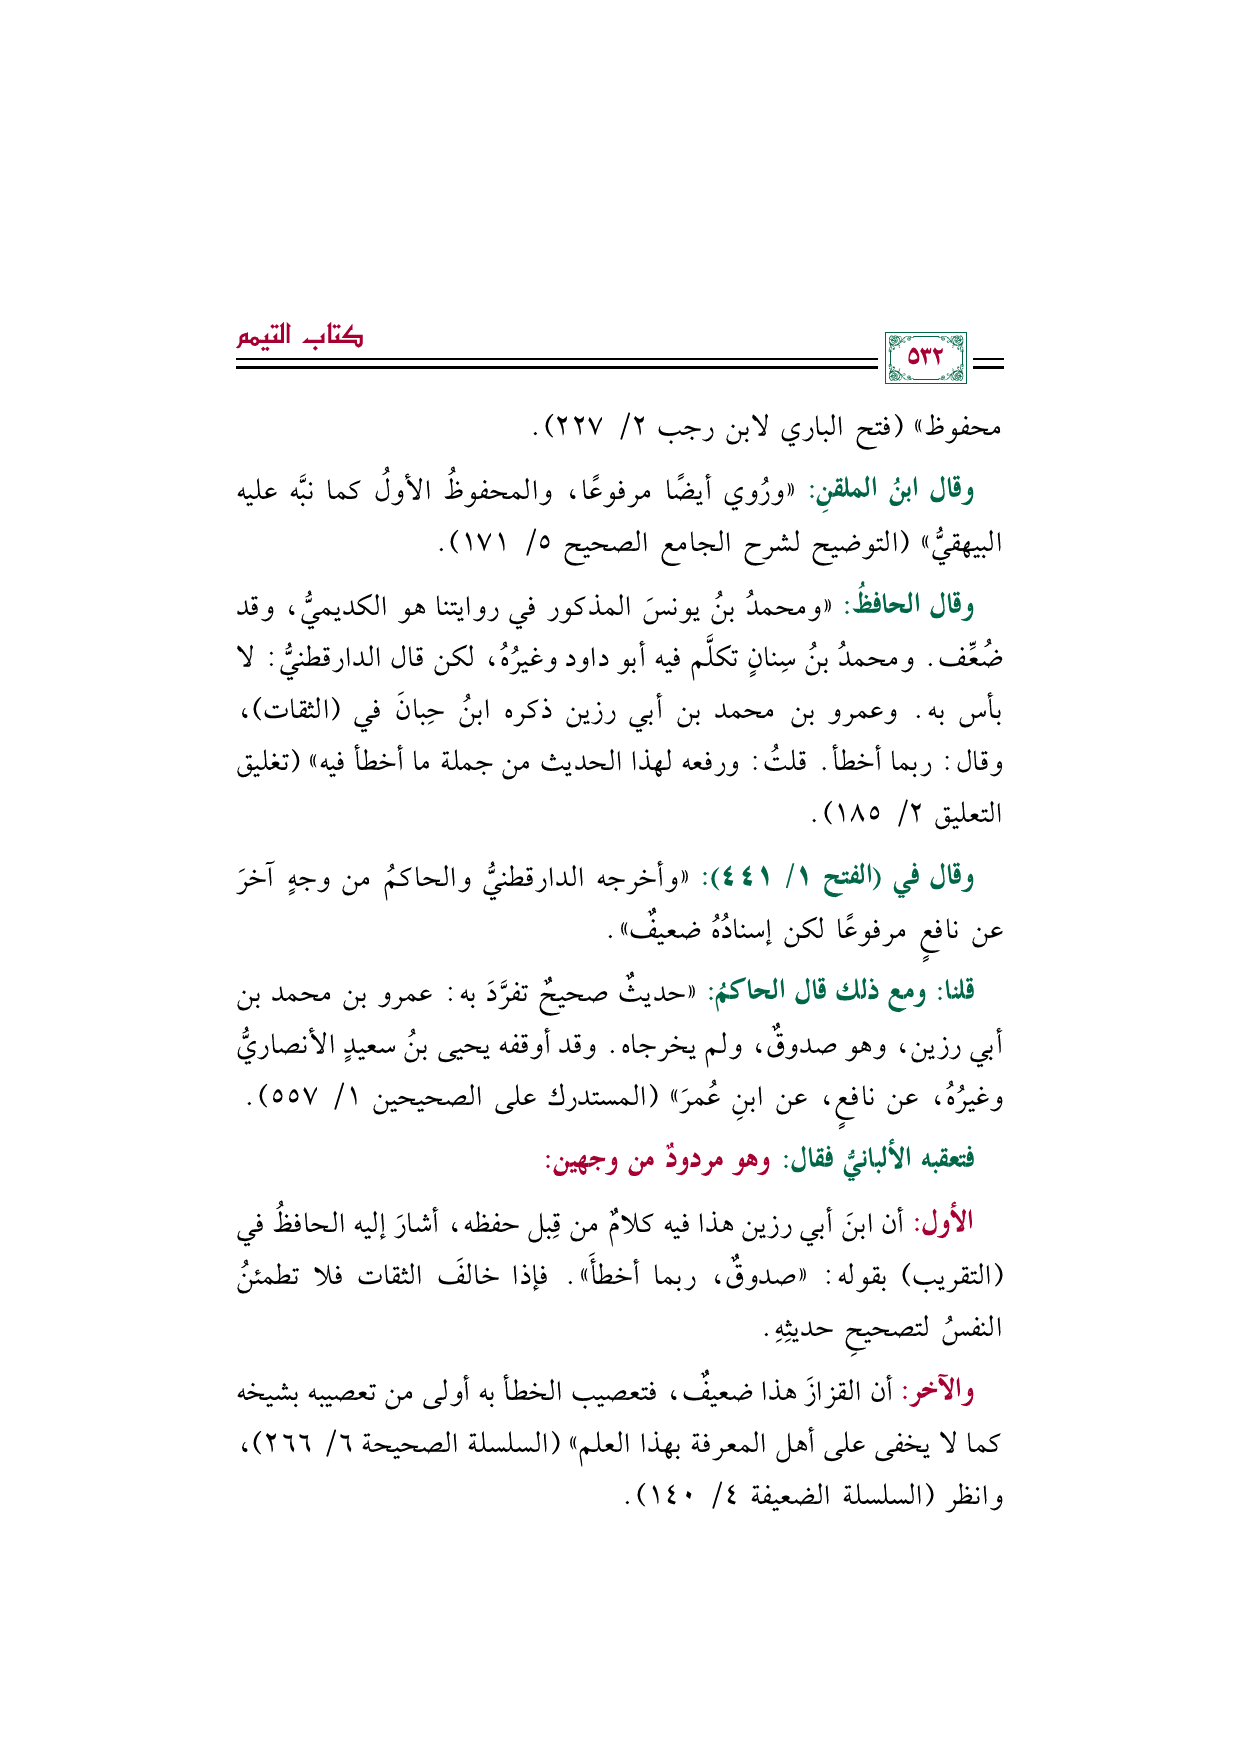 كتاب التيمم
٥٣٢
محفوظ» (فتح الباري لابن رجب ٢/ ٢٢٧).
وقال ابنُ الملقنِ: «ورُوي أيضًا مرفوعًا، والمحفوظُ الأولُ كما نبَّه عليه
البيهقيُّ» (التوضيح لشرح الجامع الصحيح ٥/ ١٧١).
وقال الحافظُ: «ومحمدُ بنُ يونسَ المذكور في روايتنا هو الكديميُّ، وقد
ضُعِّف. ومحمدُ بنُ سِنانٍ تكلَّم فيه أبو داود وغيرُهُ، لكن قال الدارقطنيُّ: لا
بأس به. وعمرو بن محمد بن أبي رزين ذكره ابنُ حِبانَ في (الثقات)،
وقال: ربما أخطأ. قلتُ: ورفعه لهذا الحديث من جملة ما أخطأ فيه» (تغليق
التعليق ٢/ ١٨٥).
وقال في (الفتح ١/ ٤٤١): «وأخرجه الدارقطنيُّ والحاكمُ من وجهٍ آخرَ
عن نافعٍ مرفوعًا لكن إسنادُهُ ضعيفٌ».
قلنا: ومع ذلك قال الحاكمُ: «حديثٌ صحيحٌ تفرَّدَ به: عمرو بن محمد بن
أبي رزين، وهو صدوقٌ، ولم يخرجاه. وقد أوقفه يحيى بنُ سعيدٍ الأنصاريُّ
وغيرُهُ، عن نافعٍ، عن ابنِ عُمرَ» (المستدرك على الصحيحين ١/ ٥٥٧).
فتعقبه الألبانيُّ فقال: وهو مردودٌ من وجهين:
الأول: أن ابنَ أبي رزين هذا فيه كلامٌ من قِبل حفظه، أشارَ إليه الحافظُ في
(التقريب) بقوله: «صدوقٌ، ربما أخطأَ». فإذا خالفَ الثقات فلا تطمئنُ
النفسُ لتصحيحِ حديثِهِ.
والآخر: أن القزازَ هذا ضعيفٌ، فتعصيب الخطأ به أولى من تعصيبه بشيخه
كما لا يخفى على أهل المعرفة بهذا العلم» (السلسلة الصحيحة ٦/ ٢٦٦)،
وانظر (السلسلة الضعيفة ٤/ ١٤٠).